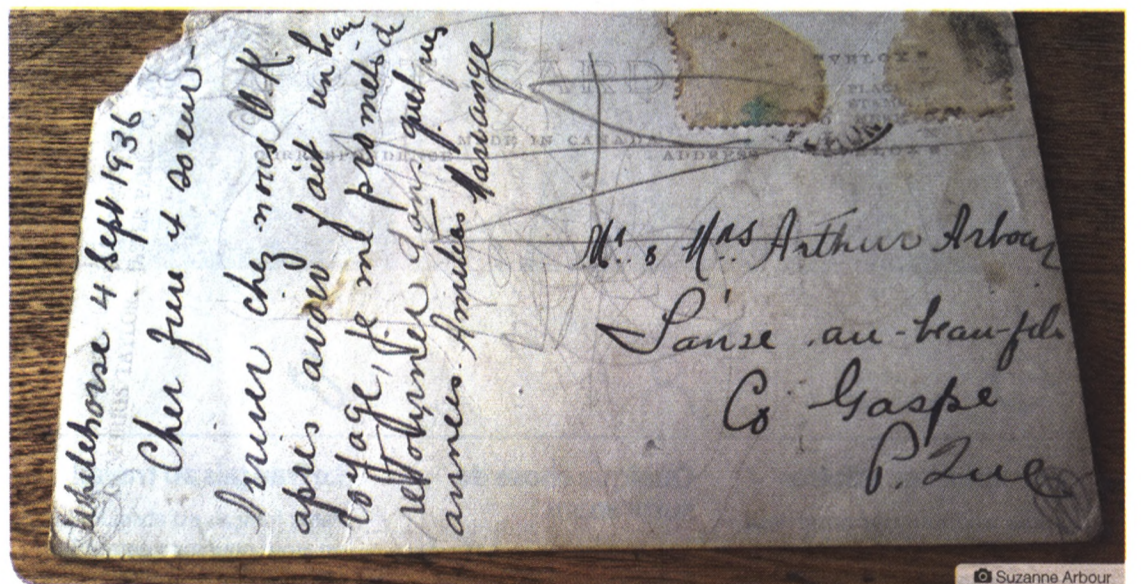 Whitehorse 4 Sept 1936
Cher frere & soeur -
Arriver chez nous O.K.
apres avoir fait un beau
voyage, Je me promets de
retourner dans quelques
annees. Amitiés Marange
CARD
MADE IN CANADA
CORRESPONDENCE
ADDRESS
VELOX
PLACE
STAMP
VELOX
Mr. & Mrs Arthur Arbour
L'anse au-beau-fils
Co Gaspe
P. Que
Suzanne Arbour